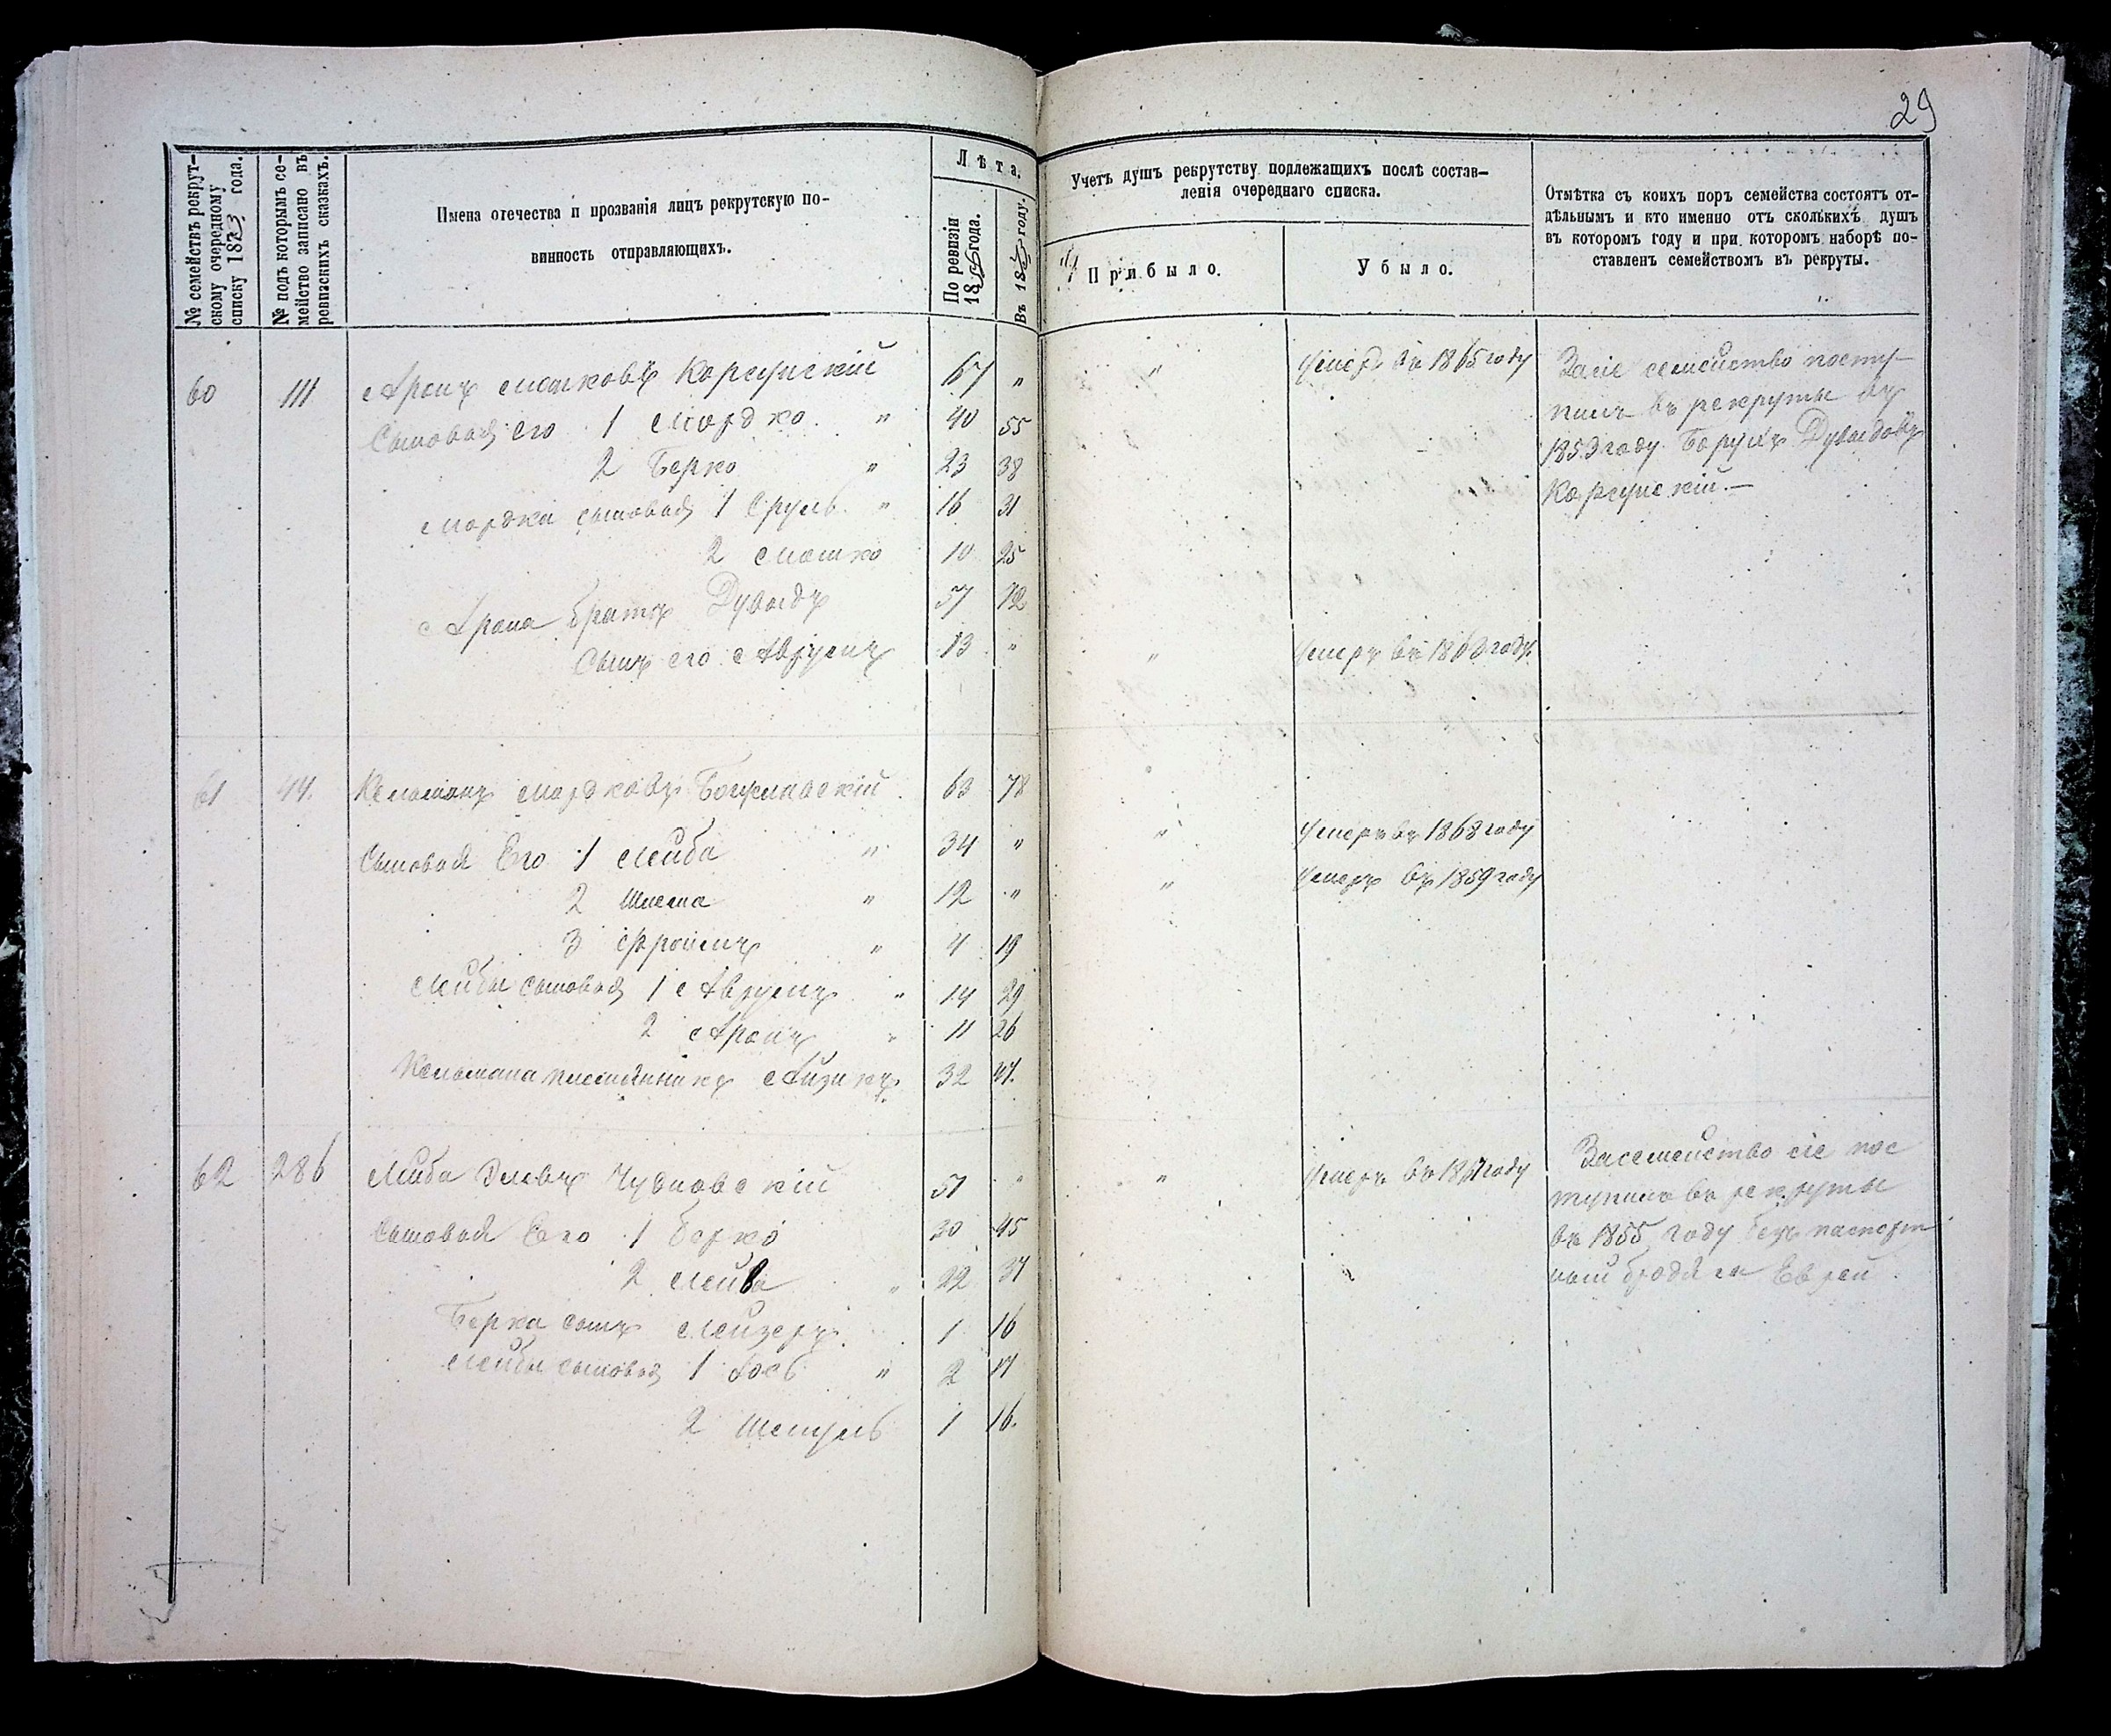 29
№ семействъ рекрут-
скому очередному
списку 1873 года.
№ подъ которымъ се-
мейство записано въ
ревизскихъ сказкахъ.
Имена отечества и прозванія лицъ рекрутскую по-
винность отправляющихъ.
Лѣта.
По ревизіи
18 года.
Въ 18 году.
Учетъ душъ рекрутству подлежащихъ послѣ состав-
ленія очереднаго списка.
Прибыло.
Убыло.
Отмѣтка съ коихъ поръ семейства состоятъ от-
дѣльнымъ и кто именно отъ сколькихъ душъ
въ которомъ году и при которомъ наборѣ по-
ставленъ семействомъ въ рекруты.
60 111 Аронъ Мошковъ Корсунскій 67 " " Умеръ въ 1865 году
Сыновья его 1 Мордко " 40 55
2 Берко " 23 38
Мордки сыновья 1 Сруль " 16 31
2 Мошко 10 25
Арона братъ Дувидъ 57 72
Сынъ его Аврумъ 13 " " Умеръ въ 1863 году
За сіе семейство посту-
пилъ въ рекруты въ
1853 году Борухъ Дувидовъ
Корсунскій.—
61 44. Кельманъ Мордковъ 63 78
Сыновья Его 1 Лейба " 34 " " Умеръ въ 1868 году
2 Шлема " 12 " " Умеръ въ 1859 году
3 Фроимъ " 4 19
Лейбы сыновья 1 Аврумъ " 14 29
2 Аронъ " 11 26
Кельмана племянникъ Айзикъ 32 47.
62 286 Лейба Чудновскій 51 " " Умеръ въ 1867 году
Сыновья Его 1 Берко 30 45
2 " 22 37
Берка сынъ Лейзеръ 1 16
сыновья 1 Іось " 2 17
2 1 16.
За семейство сіе пос
тупилъ въ рекруты
въ 1855 году безъ паспорт
ный бродяга Еврей.